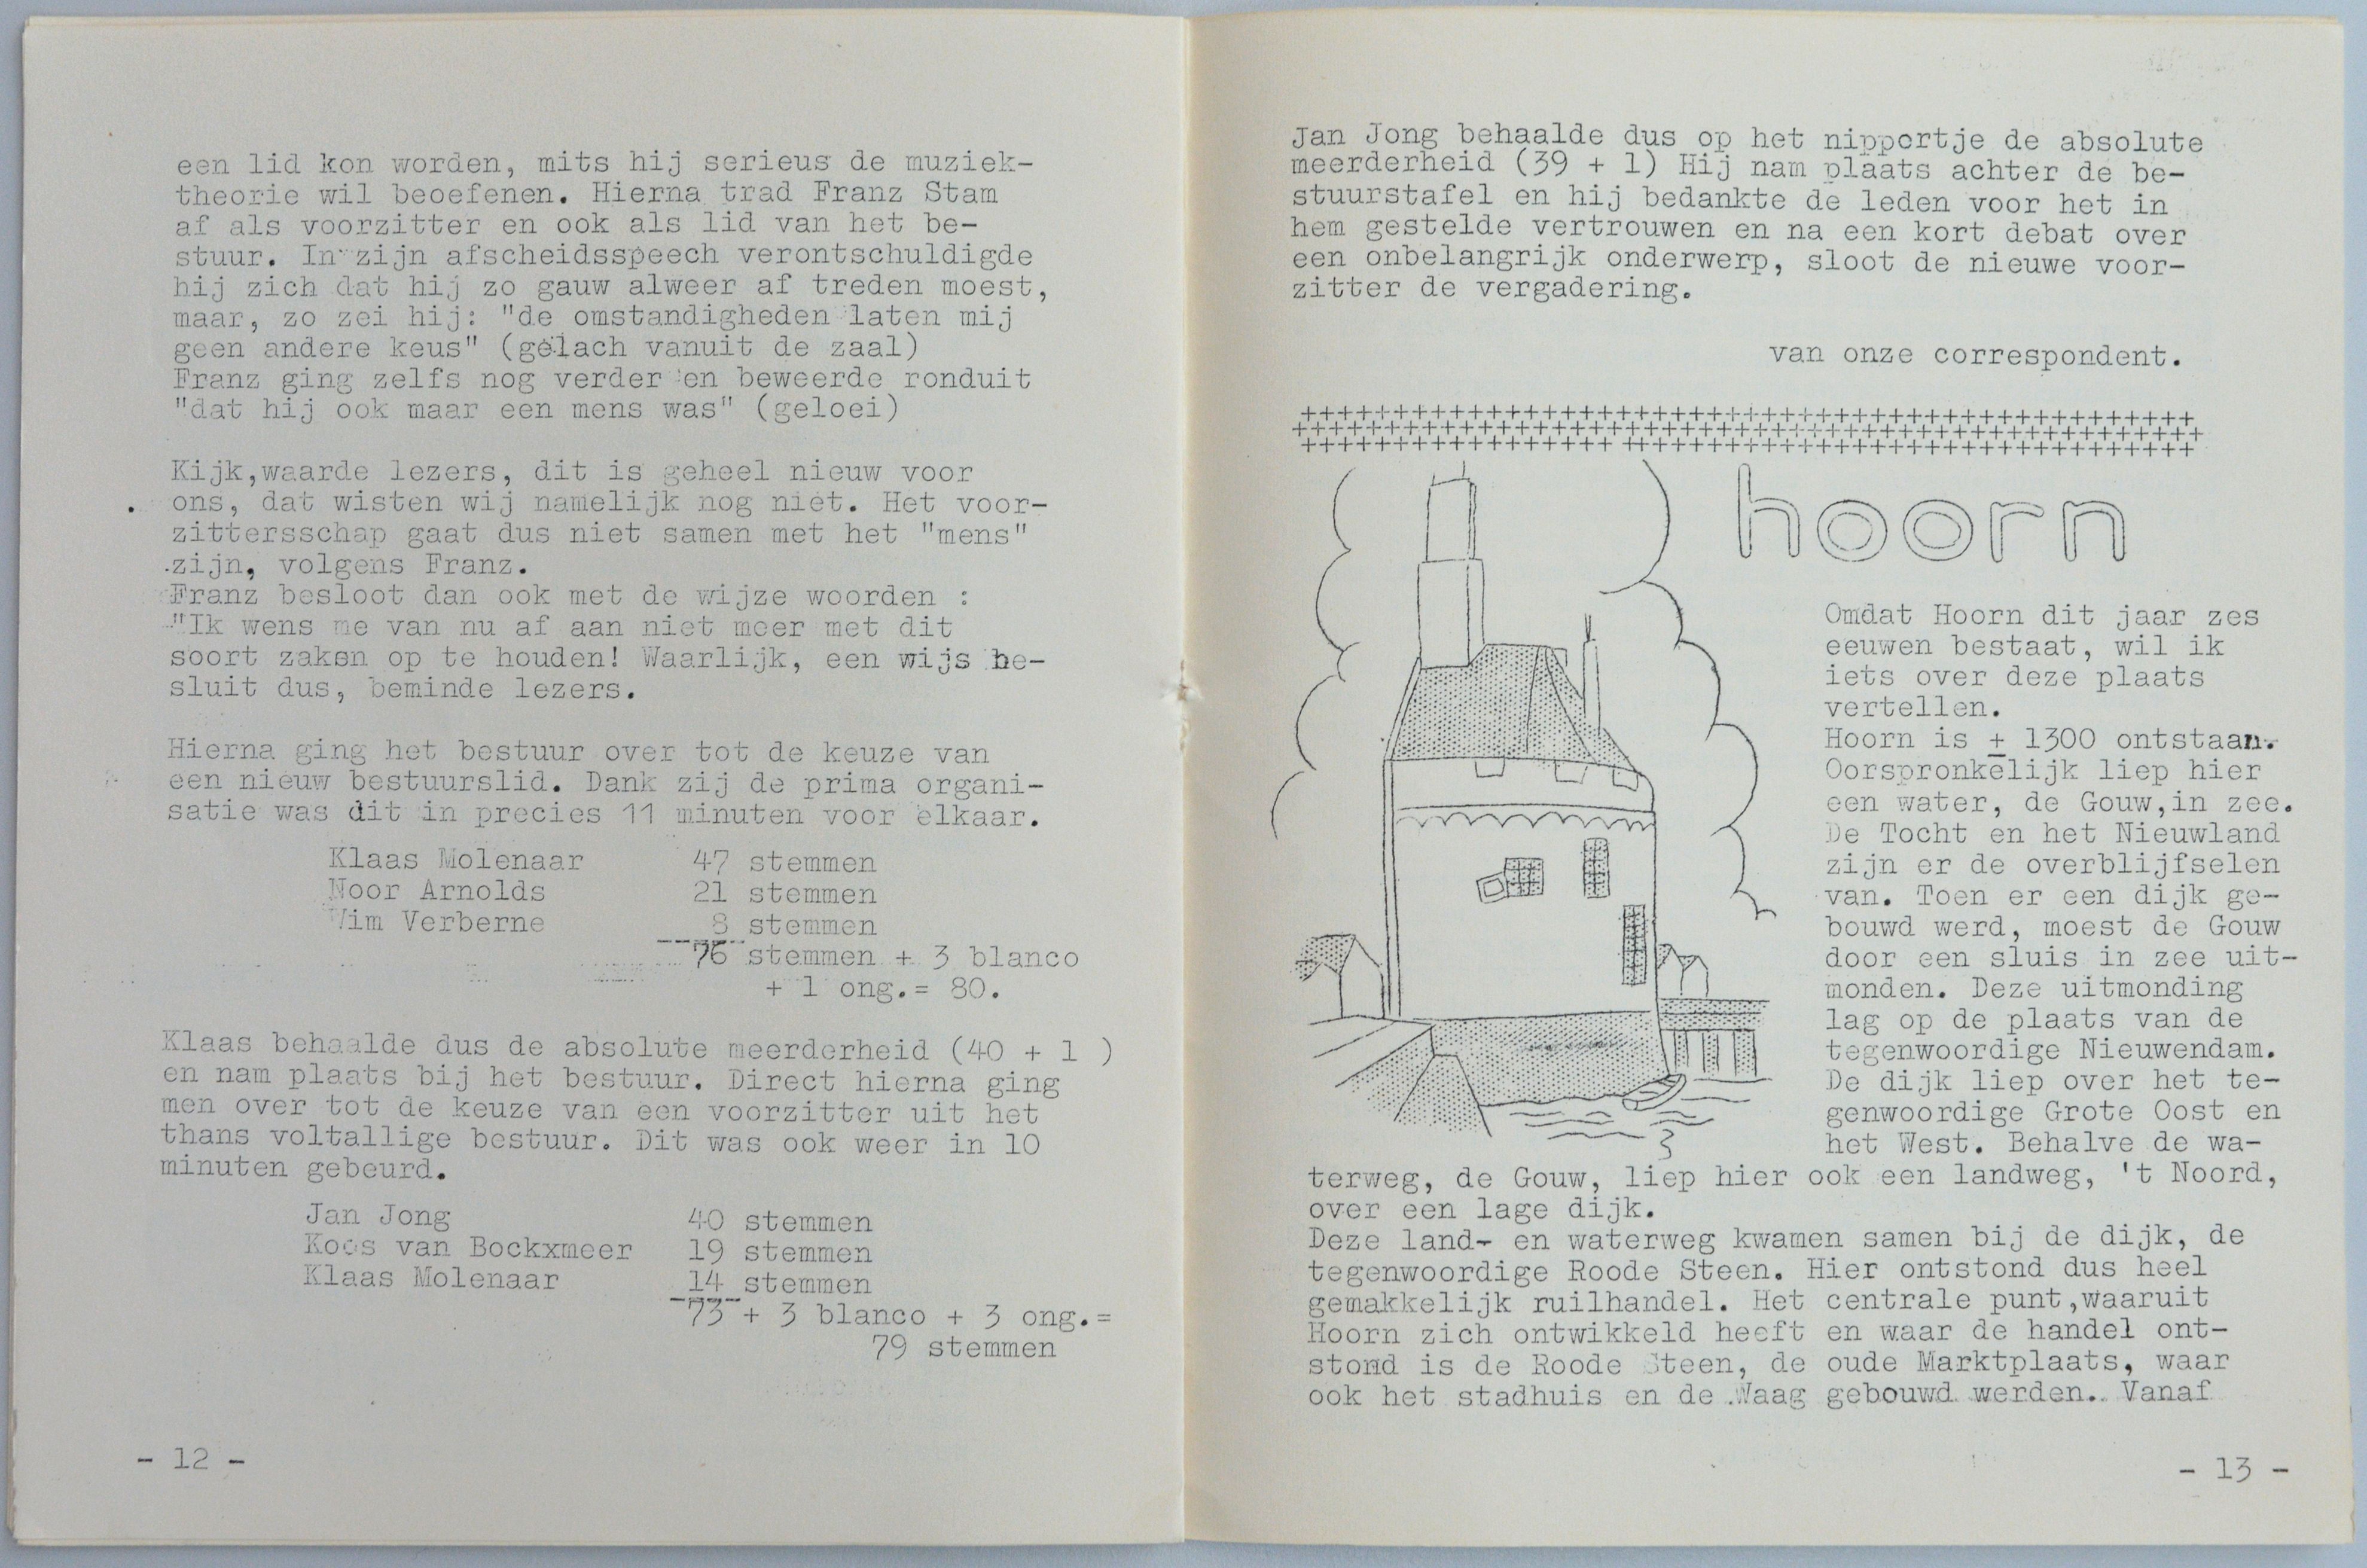 een lid kon worden, mits hij serieus de muziek-
theorie wil beoefenen. Hierna trad Franz Stam
af als voorzitter en ook als lid van het be-
stuur. In zijn afscheidsspeech verontschuldigde
hij zich dat hij zo gauw alweer af treden moest,
maar, zo zei hij: "de omstandigheden laten mij
geen andere keus" (gelach vanuit de zaal)
Franz ging zelfs nog verder en beweerde ronduit
"dat hij ook maar een mens was" (geloei)
Kijk,waarde lezers, dit is geheel nieuw voor
ons, dat wisten wij namelijk nog niet. Het voor-
zittersschap gaat dus niet samen met het "mens"
zijn, volgens Franz.
Franz besloot dan ook met de wijze woorden :
"Ik wens me van nu af aan niet meer met dit
soort zaken op te houden! Waarlijk, een wijs be-
sluit dus, beminde lezers.
Hierna ging het bestuur over tot de keuze van
een nieuw bestuurslid. Dank zij de prima organi-
satie was dit in precies 11 minuten voor elkaar.
Klaas Molenaar 47 stemmen
Noor Arnolds 21 stemmen
Wim Verberne 8 stemmen
76 stemmen + 3 blanco
+ 1 ong.= 80.
Klaas behaalde dus de absolute meerderheid (40 + 1 )
en nam plaats bij het bestuur. Direct hierna ging
men over tot de keuze van een voorzitter uit het
thans voltallige bestuur. Dit was ook weer in 10
minuten gebeurd.
Jan Jong 40 stemmen
Koos van Bockxmeer 19 stemmen
Klaas Molenaar 14 stemmen
73 + 3 blanco + 3 ong.=
79 stemmen
- 12 -
Jan Jong behaalde dus op het nippertje de absolute
meerderheid (39 + 1) Hij nam plaats achter de be-
stuurstafel en hij bedankte de leden voor het in
hem gestelde vertrouwen en na een kort debat over
een onbelangrijk onderwerp, sloot de nieuwe voor-
zitter de vergadering.
van onze correspondent.
+++++++++++++++++++++++++++++++++++++++++++++++++
++++++++++++++++++++++++++++++++++++++++++++++++++
+++++++++++++++++ +++++++++++++++++++++++++++++++
hoorn
Omdat Hoorn dit jaar zes
eeuwen bestaat, wil ik
iets over deze plaats
vertellen.
Hoorn is ± 1300 ontstaan.
Oorspronkelijk liep hier
een water, de Gouw,in zee.
De Tocht en het Nieuwland
zijn er de overblijfselen
van. Toen er een dijk ge-
bouwd werd, moest de Gouw
door een sluis in zee uit-
monden. Deze uitmonding
lag op de plaats van de
tegenwoordige Nieuwendam.
De dijk liep over het te-
genwoordige Grote Oost en
het West. Behalve de wa-
terweg, de Gouw, liep hier ook een landweg, 't Noord,
over een lage dijk.
Deze land- en waterweg kwamen samen bij de dijk, de
tegenwoordige Roode Steen. Hier ontstond dus heel
gemakkelijk ruilhandel. Het centrale punt,waaruit
Hoorn zich ontwikkeld heeft en waar de handel ont-
stond is de Roode Steen, de oude Marktplaats, waar
ook het stadhuis en de Waag gebouwd werden. Vanaf
- 13 -